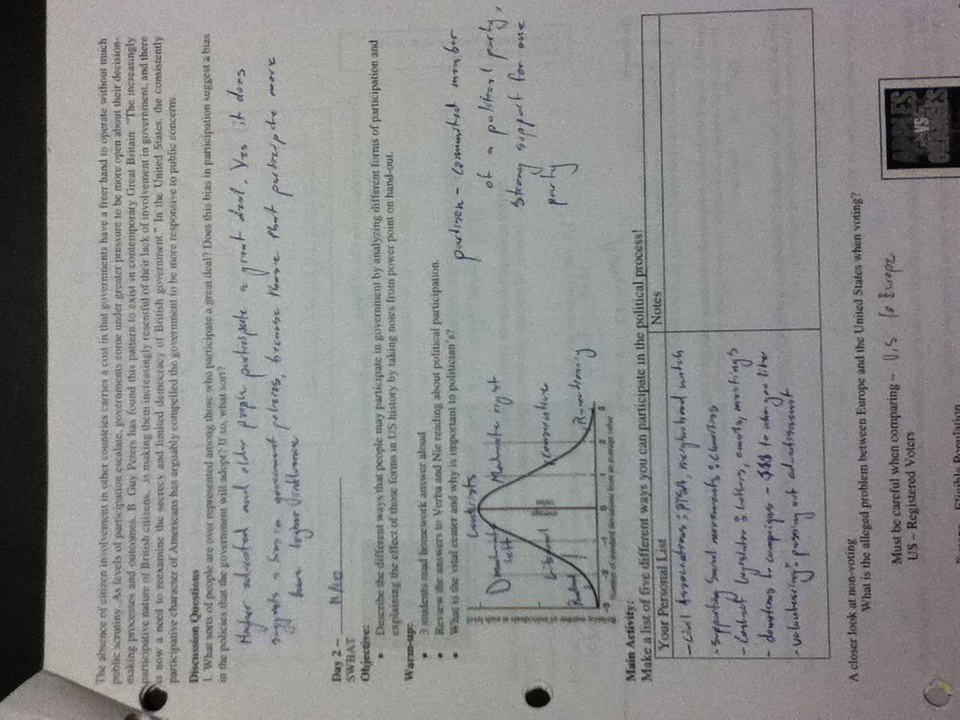 The absence of citizen involvement in other countries carries a cost in that governments have a freer hand to operate without much
public scrutiny. As levels of participation escalate, governments come under greater pressure to be more open about their decision-
making processes and outcomes. B. Guy Peters has found this pattern to exist in contemporary Great Britain: "The increasingly
participative nature of British citizens...is making them increasingly resentful of their lack of involvement in government, and there
is now a need to reexamine the secrecy and limited democracy of British government." In the United States, the consistently
participative character of Americans has arguably compelled the government to be more responsive to public concerns.
Discussion Questions
1. What sorts of people are over represented among those who participate a great deal? Does this bias in participation suggest a bias
in the policies that the government will adopt? If so, what sort?
Higher educated and older people participate a great deal. Yes it does
suggests a bias in government policies, because those that participate more
have higher influence
Day 2 –
SWBAT
Objective:
• Describe the different ways that people may participate in government by analyzing different forms of participation and
explaining the effect of those forms in US history by taking notes from power point on hand-out.
Warm-up:
• 3 students read homework answer aloud
• Review the answers to Verba and Nie reading about political participation.
• What is the vital center and why is important to politician's?
partison - committed member
of a political party,
strong support for one
party
Centrists
left
Moderate right
Liberal
conservative
Reactionary
average value
Relative number of individuals at each level
-3 -2 -1 0 1 2 3
Number of standard deviations from an average value
Main Activity:
Make a list of five different ways you can participate in the political process!
Your Personal List
Notes
- Civil Associations: PTSA, neighborhood watch
- supporting Social movements: charities
- Contact legislator: letters, emails, meetings
- donations to campaigns - $$$ to who you like
- volunteering: passing out advertisment
A closer look at non-voting
What is the alleged problem between Europe and the United States when voting?
Must be careful when comparing – U.S to Europe
US – Registered Voters
APPLES
VS
ORANGES
Eligible Population